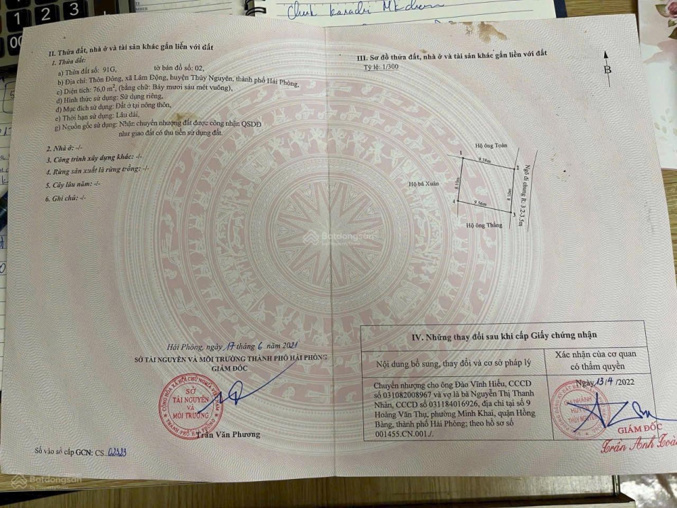 II. Thửa đất, nhà ở và tài sản khác gắn liền với đất
1. Thửa đất:
a) Thửa đất số: 91G, tờ bản đồ số: 02,
b) Địa chỉ: Thôn Đông, xã Lâm Động, huyện Thủy Nguyên, thành phố Hải Phòng,
c) Diện tích: 76,0 m², (bằng chữ: Bảy mươi sáu mét vuông),
d) Hình thức sử dụng: Sử dụng riêng,
đ) Mục đích sử dụng: Đất ở tại nông thôn,
e) Thời hạn sử dụng: Lâu dài,
g) Nguồn gốc sử dụng: Nhận chuyển nhượng đất được công nhận QSDĐ
như giao đất có thu tiền sử dụng đất.
2. Nhà ở: -/-
3. Công trình xây dựng khác: -/-
4. Rừng sản xuất là rừng trồng: -/-
5. Cây lâu năm: -/-
6. Ghi chú: -/-
Hải Phòng, ngày 17 tháng 6 năm 2021
SỞ TÀI NGUYÊN VÀ MÔI TRƯỜNG THÀNH PHỐ HẢI PHÒNG
GIÁM ĐỐC
SỞ
TÀI NGUYÊN
VÀ
MÔI TRƯỜNG
Trần Văn Phương
Số vào sổ cấp GCN: CS
III. Sơ đồ thửa đất, nhà ở và tài sản khác gắn liền với đất
Tỷ lệ: 1/300
B
Hộ ông Toán
Hộ bà Xuân
Hộ ông Thắng
Ngõ đi chung
1
2
3
4
IV. Những thay đổi sau khi cấp Giấy chứng nhận
Nội dung bổ sung, thay đổi và cơ sở pháp lý
Xác nhận của cơ quan
có thẩm quyền
Chuyển nhượng cho ông Đào Vĩnh Hiếu, CCCD
số 031082008967 và vợ là bà Nguyễn Thị Thanh
Nhàn, CCCD số 031184016926, địa chỉ tại số 9
Hoàng Văn Thụ, phường Minh Khai, quận Hồng
Bàng, thành phố Hải Phòng; theo hồ sơ số
001455.CN.001./.
Ngày 13/4/2022
GIÁM ĐỐC
Trần Anh
Batdongsan